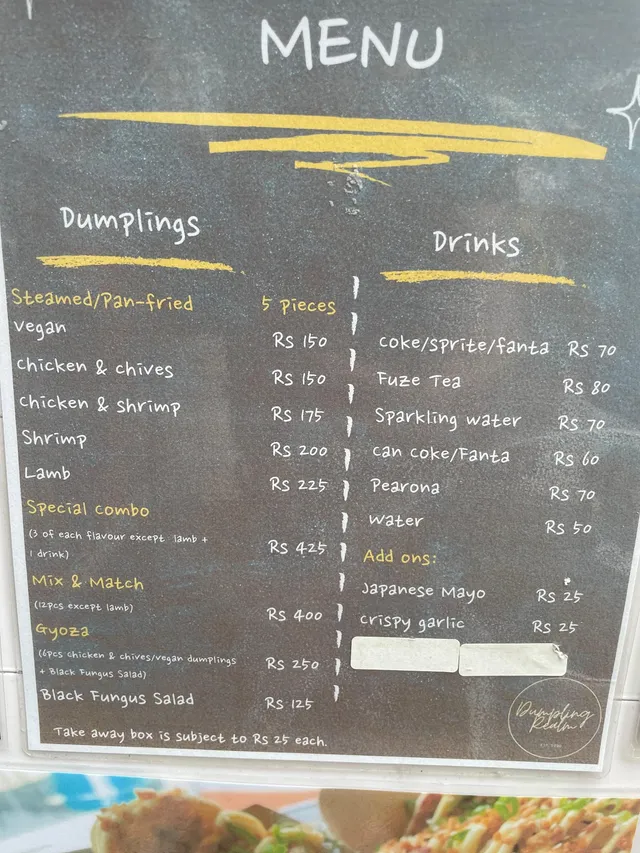 MENU
Dumplings
Steamed/Pan-fried 5 pieces
vegan Rs 150
chicken & chives Rs 150
chicken & shrimp Rs 175
Shrimp Rs 200
Lamb Rs 225
Special combo
(3 of each flavour except lamb +
1 drink) Rs 425
Mix & Match
(12pcs except lamb) Rs 400
Gyoza
(6pcs chicken & chives/vegan dumplings Rs 250
+ Black Fungus Salad)
Black Fungus Salad Rs 125
Take away box is subject to Rs 25 each.
Drinks
coke/sprite/fanta Rs 70
Fuze Tea Rs 80
Sparkling water Rs 70
can coke/Fanta Rs 60
Pearona Rs 70
water Rs 50
Add ons:
Japanese Mayo Rs 25
crispy garlic Rs 25
Dumpling
Realm